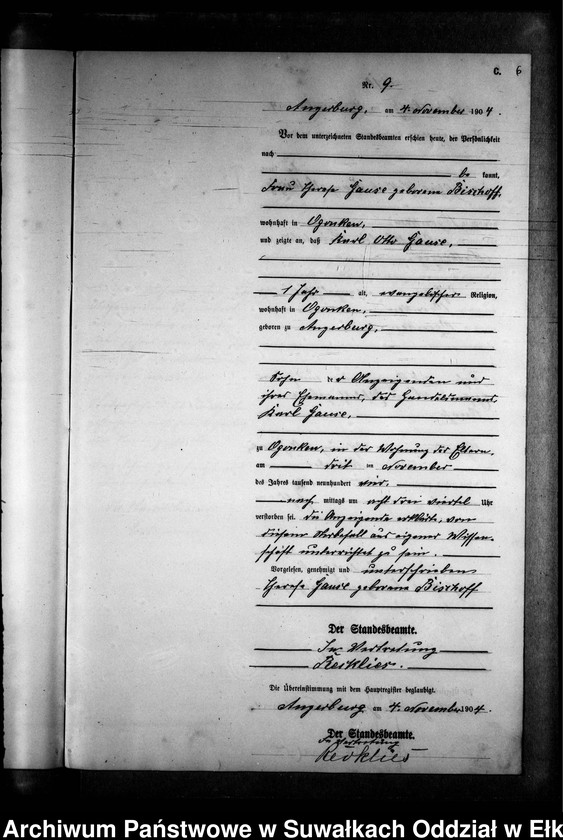 C. 6
Nr. 9.
Angerburg, am 4. November 1904.
Vor dem unterzeichneten Standesbeamten erschien heute, der Persönlichkeit
nach
be kannt,
Frau Therese Gause geborene Bischoff,
wohnhaft in Ogonken,
und zeigte an, daß Karl Otto Gause,
1 Jahr alt, evangelischer Religion,
wohnhaft in Ogonken,
geboren zu Angerburg,
Sohn der Anzeigenden und
ihres Ehemanns, des Handelsmanns
Karl Gause,
zu Ogonken, in der Wohnung der Eltern,
am drit ten November
des Jahres tausend neunhundert vier,
nach mittags um acht drei viertel Uhr
verstorben sei. Die Anzeigende erklärte, von
diesem Sterbefall aus eigener Wissen-
schaft unterrichtet zu sein.
Vorgelesen, genehmigt und unterschrieben
Therese Gause geborene Bischoff
Der Standesbeamte.
In Vertretung
Die Übereinstimmung mit dem Hauptregister beglaubigt.
Angerburg am 4. November 1904.
Der Standesbeamte.
In Vertretung
Archiwum Państwowe w Suwałkach Oddział w Ełk